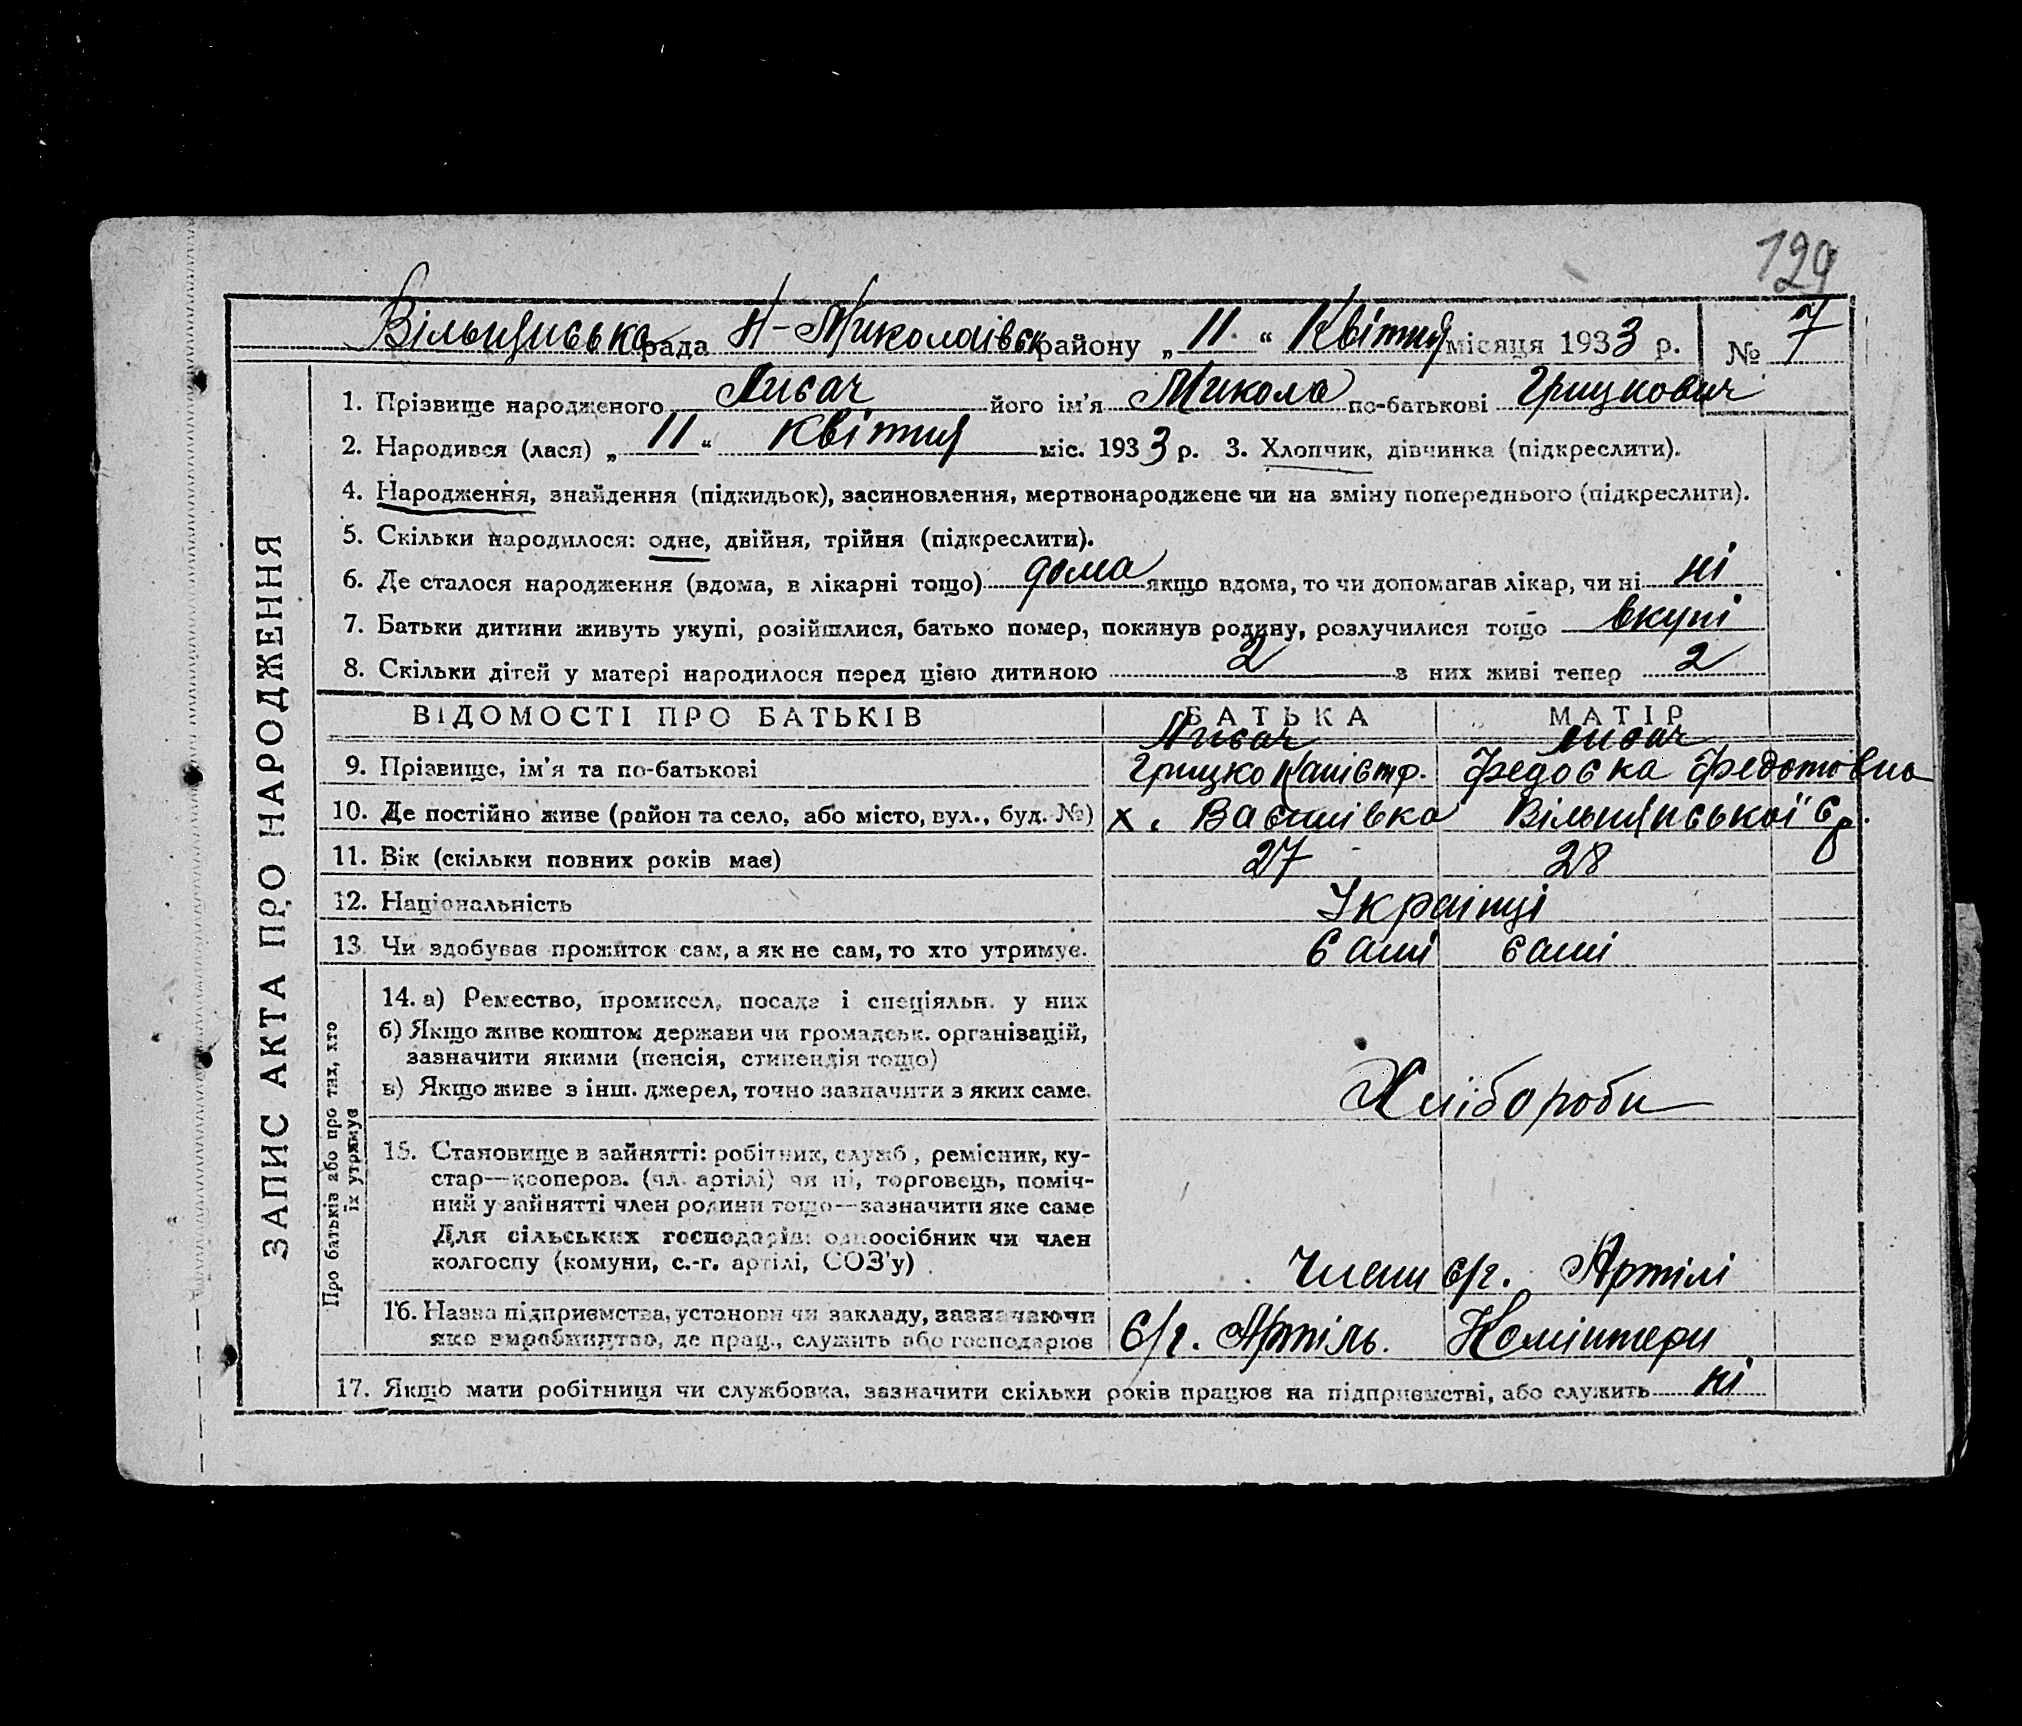 129
Вільнянська рада Н-Миколаівськ району „11" Квітня місяця 1933 р. № 7
ЗАПИС АКТА ПРО НАРОДЖЕННЯ
1. Прізвище народженого Лисач його ім'я Микола по-батькові Грицкович
2. Народився (лася) „11" Квітня міс. 1933 р. 3. Хлопчик, дівчинка (підкреслити).
4. Народження, знайдення (підкидьок), засиновлення, мертвонароджене чи на зміну попереднього (підкреслити).
5. Скільки народилося: одне, двійня, трійня (підкреслити).
6. Де сталося народження (вдома, в лікарні тощо) дома якщо вдома, то чи допомагав лікар, чи ні ні
7. Батьки дитини живуть укупі, розійшлися, батько помер, покинув родину, розлучилися тощо вкупі
8. Скільки дітей у матері народилося перед цією дитиною 2 з них живі тепер 2
ВІДОМОСТІ ПРО БАТЬКІВ БАТЬКА МАТІР
Лисач Лисач
9. Прізвище, ім'я та по-батькові Грицко Калістр. Федоска Федотовна
10. Де постійно живе (район та село, або місто, вул., буд. №) х. Василівка Вільнянської с/р.
11. Вік (скільки повних років має) 27 28
12. Національність Українці
13. Чи здобував прожиток сам, а як не сам, то хто утримує. Самі самі
Про батьків або про тих, хто
їх утримує
14. а) Ремество, промисел, посада і спеціяльн. у них
б) Якщо живе коштом держави чи громадськ. організацій,
зазначити якими (пенсія, стипендія тощо)
в) Якщо живе з інш. джерел, точно зазначити з яких саме. Хлібороби
15. Становище в зайнятті: робітник, служб, ремісник, ку-
стар—кооперов. (чл. артілі) чи ні, торговець, поміч-
ний у зайнятті член родини тощо—зазначити яке саме
Для сільських господарів: одноосібник чи член
колгоспу (комуни, с.-г. артілі, СОЗ'у) Члени с/г. Артілі
16. Назва підприємства, установи чи закладу, зазначаючи
яке виробництво, де прац., служить або господарює С/г. Артіль. Комінтерн
17. Якщо мати робітниця чи службовка, зазначити скільки років працює на підприємстві, або служить ні